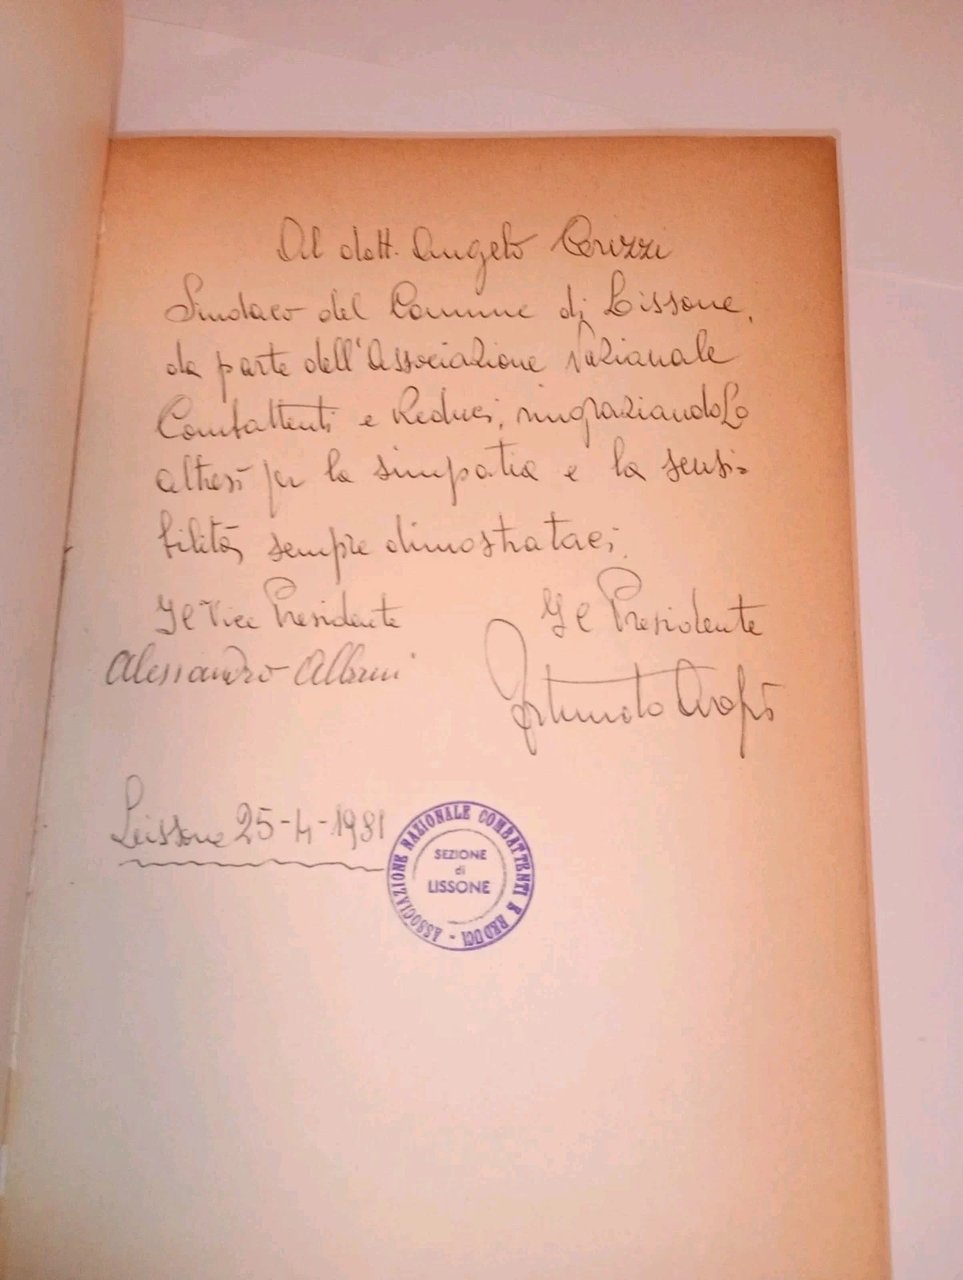 Al dott. Angelo Cerizzi
Sindaco del Comune di Lissone,
da parte dell'Associazione Nazionale
Combattenti e Reduci, ringraziandoLo
altresì per la simpatia e la sensi=
bilità, sempre dimostrataci.
Il Vice Presidente
Il Presidente
Alessandro
Fortunato Arosio
Lissone 25-4-1981
ASSOCIAZIONE NAZIONALE COMBATTENTI E REDUCI -
SEZIONE
di
LISSONE